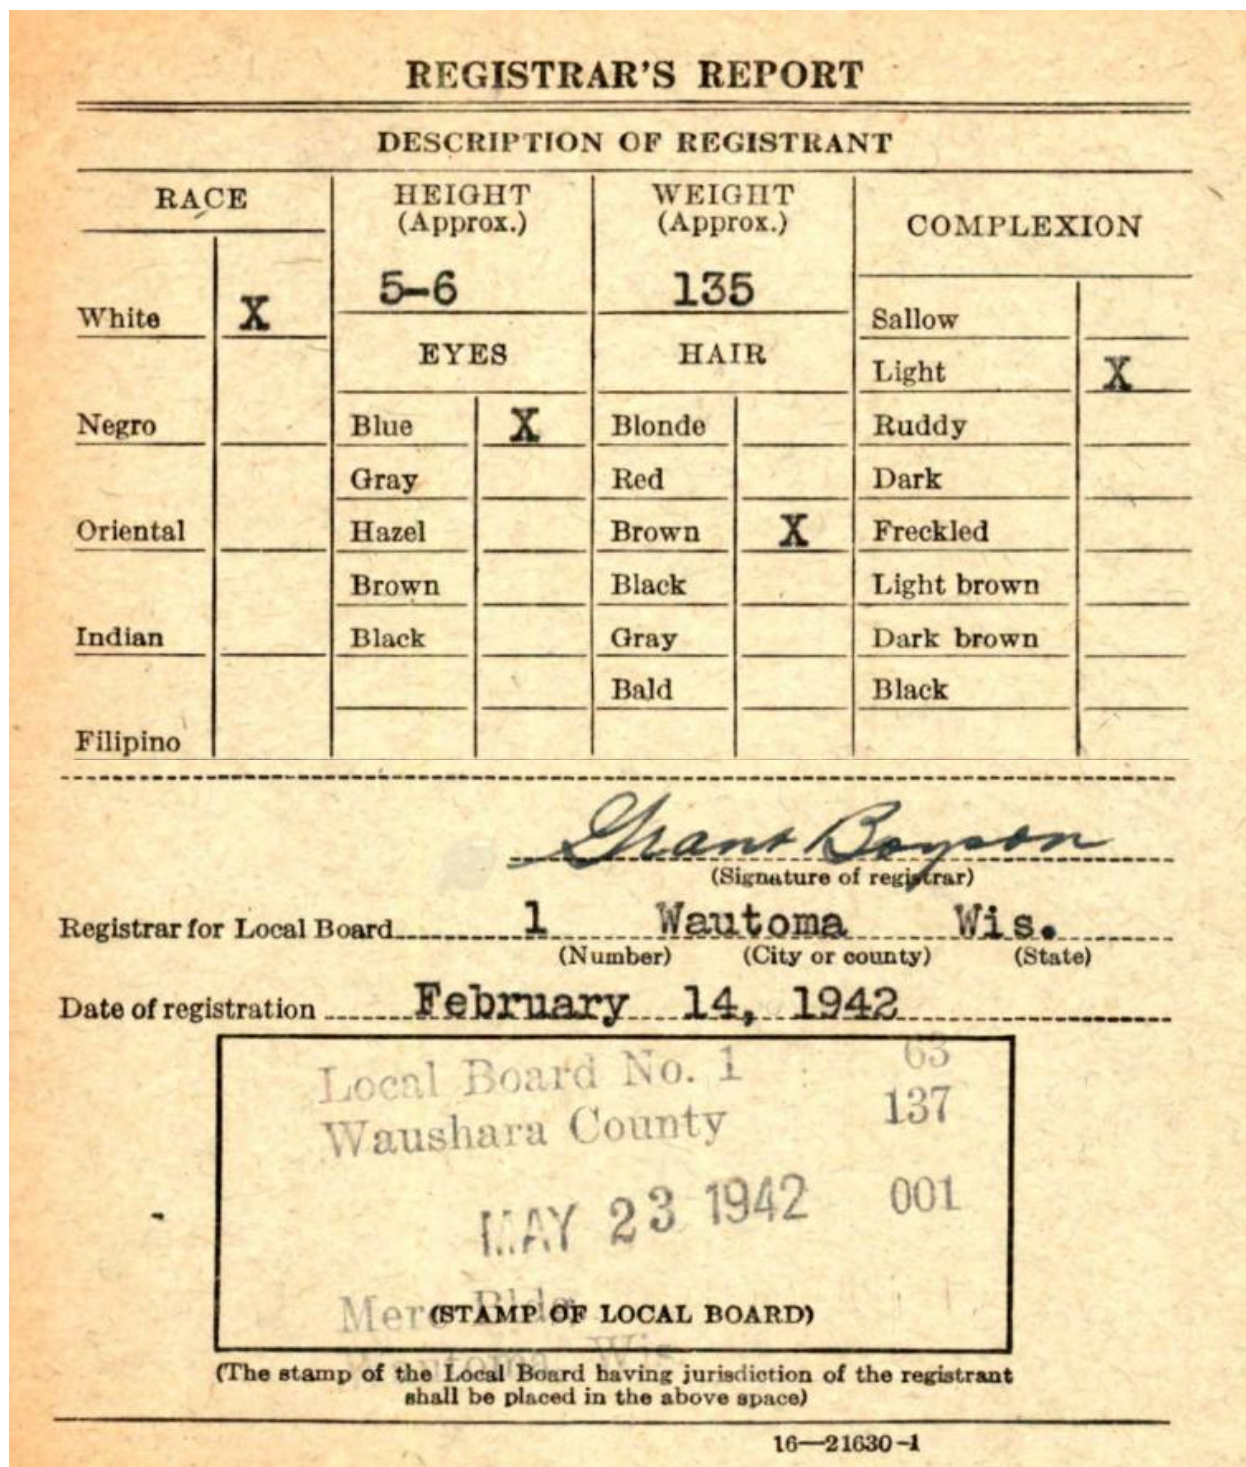 REGISTRAR'S REPORT
DESCRIPTION OF REGISTRANT
RACE
HEIGHT
(Approx.)
WEIGHT
(Approx.)
COMPLEXION
5-6
135
White X
Sallow
EYES
HAIR
Light X
Negro
Blue X
Blonde
Ruddy
Gray
Red
Dark
Oriental
Hazel
Brown X
Freckled
Brown
Black
Light brown
Indian
Black
Gray
Dark brown
Bald
Black
Filipino
Grant Boyson
(Signature of registrar)
Registrar for Local Board 1 Wautoma Wis.
(Number) (City or county) (State)
Date of registration February 14, 1942
Local Board No. 1 63
Waushara County 137
MAY 23 1942 001
Merc Bldg
(STAMP OF LOCAL BOARD)
Wautoma, Wis
(The stamp of the Local Board having jurisdiction of the registrant
shall be placed in the above space)
16—21630-1